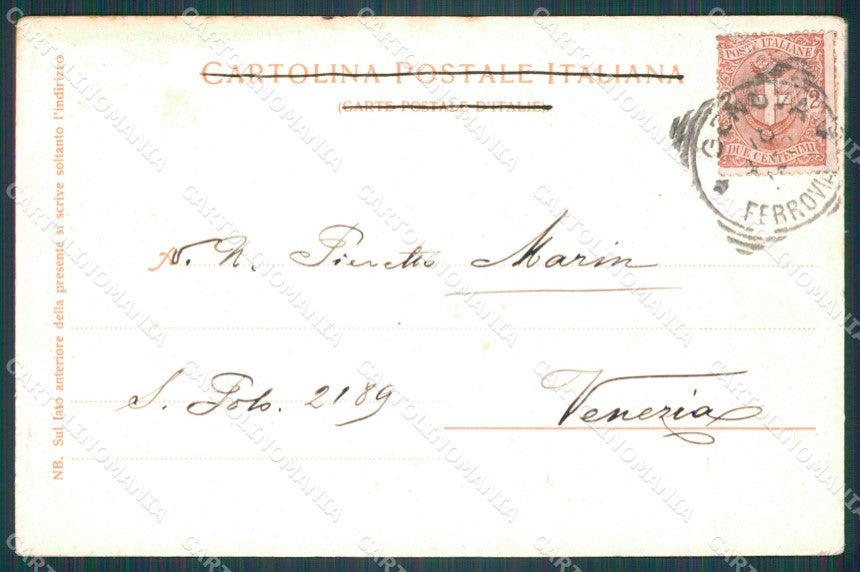 CARTOLINA POSTALE ITALIANA
(CARTE POSTALE D'ITALIE)
POSTE ITALIANE
2
DUE CENTESIMI
GENOVA
FERROVIA
NB. Sul lato anteriore della presente si scrive soltanto l'indirizzo
N. H. Pieretto Marin
S. Polo. 2189
Venezia
CARTOLINOMANIA